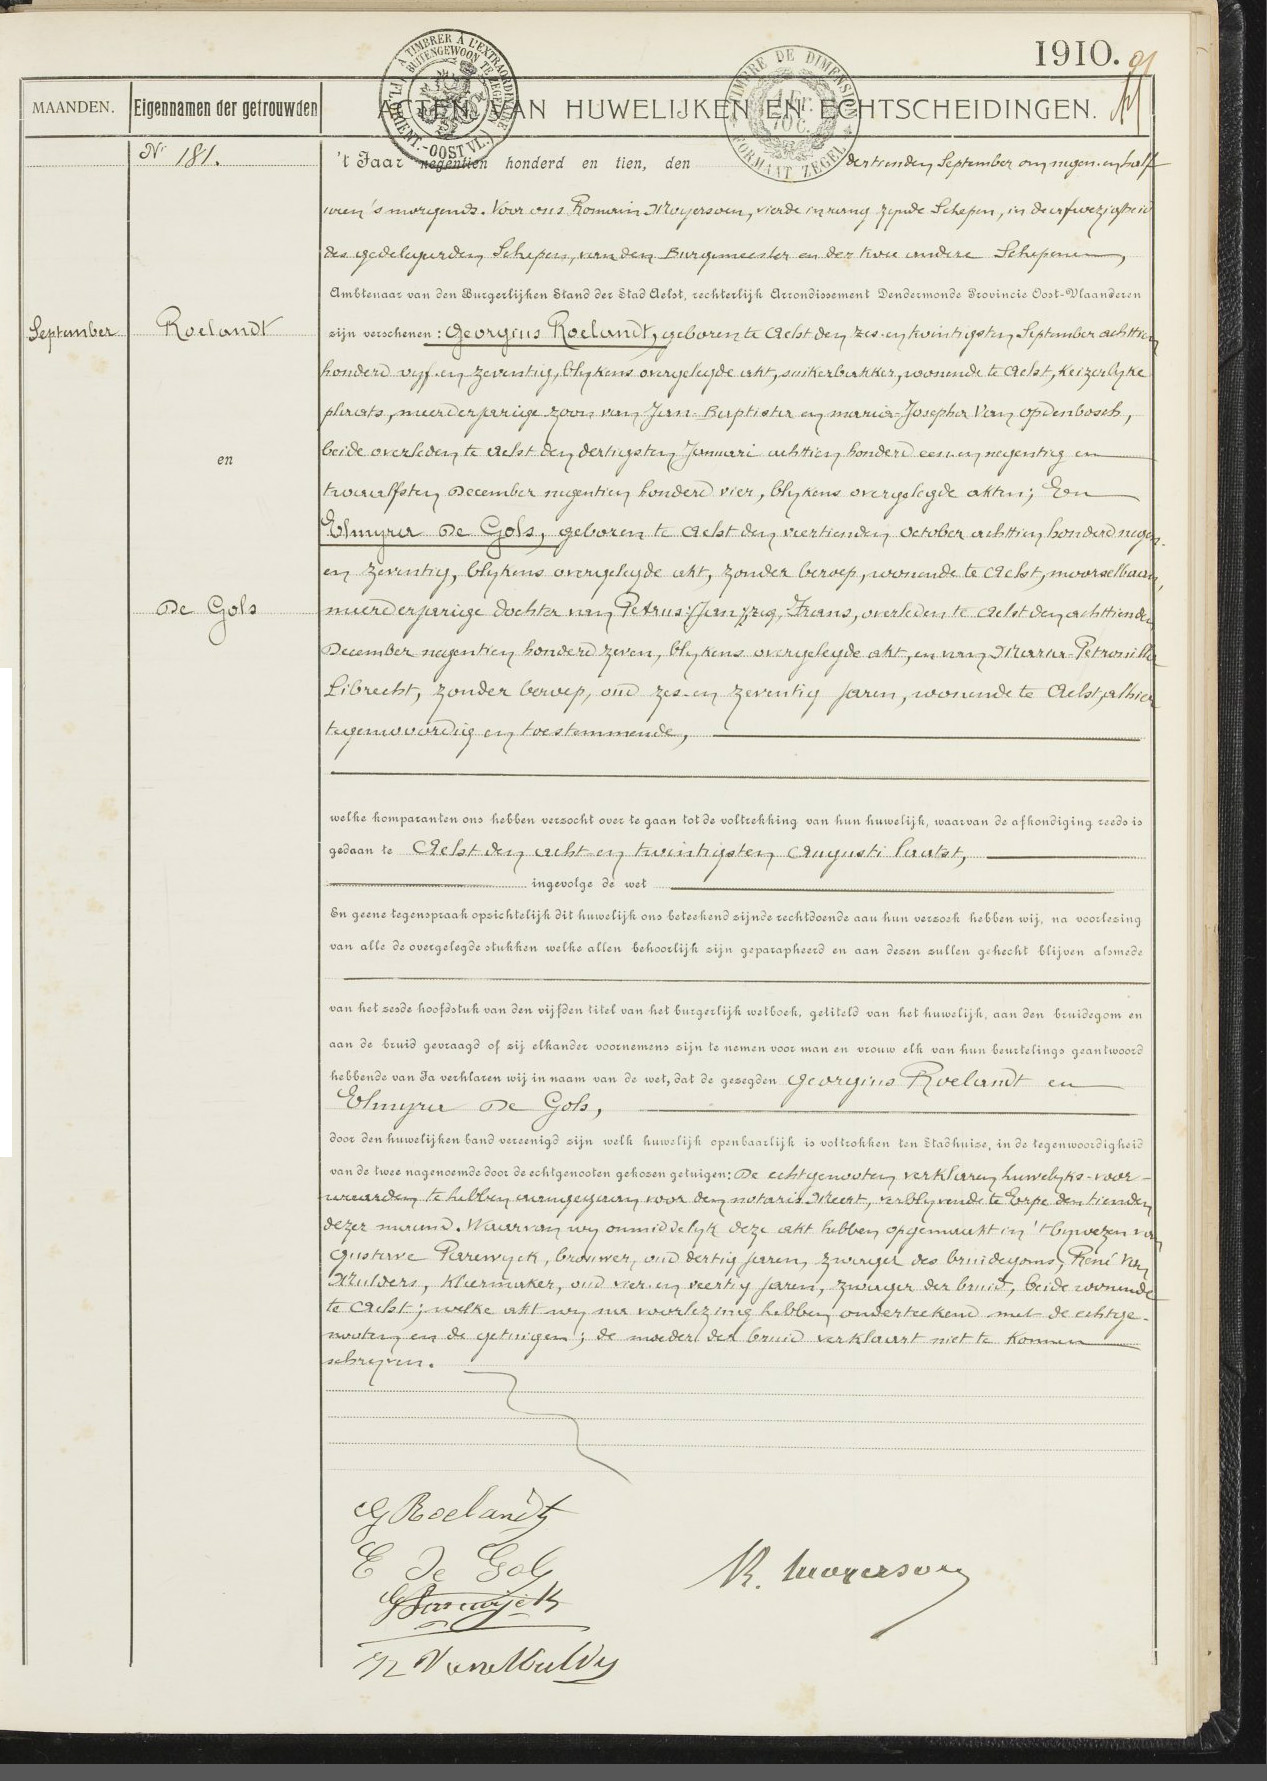 1910. 91
MAANDEN.
Eigennamen der getrouwden
ACTEN VAN HUWELIJKEN EN ECHTSCHEIDINGEN.
A TIMBRER À L'EXTRAORDINAIRE
BUITENGEWOON TE ZEGELEN
ORIENT.-OOST VL.)
TIMBRE DE DIMENSION
FORMAAT ZEGEL
Nr 181.
't Jaar negentien honderd en tien, den dertienden September om negen en half
uren 's morgends. Voor ons Romain Moyersoen, vierde in rang zynde Schepen, in de afwezigheid
des gedelegeerden Schepen, van den Burgemeester en der twee andere Schepenen,
Ambtenaar van den Burgerlijken Stand der Stad Aelst, rechterlijk Arrondissement Dendermonde Provincie Oost-Vlaanderen
September
Roelandt
en
De Gols
zijn verschenen: Georgius Roelandt, geboren te Aelst den zes en twintigsten September achttien
honderd vyf en zeventig, blykens overgelegde akt, suikerbakker, wonende te Aelst, Keizerlyke
plaats, meerderjarige zoon van Jan-Baptista en Maria-Josepha Van Opdenbosch,
beide overleden te Aelst den dertigsten Januari achttien honderd een en negentig en
twaalfsten December negentien honderd vier, blykens overgelegde akten; En
Elmyra De Gols, geboren te Aelst den viertienden October achttien honderd negen
en zeventig, blykens overgelegde akt, zonder beroep, wonende te Aelst, Moorselbaan,
meerderjarige dochter van Petrus-Jan, zeg, Frans, overleden te Aelst den achttienden
December negentien honderd zeven, blykens overgelegde akt, en van Maria-Petronilla
Librecht, zonder beroep, oud zes en zeventig jaren, wonende te Aelst, alhier
tegenwoordig en toestemmende,
welke komparanten ons hebben verzocht over te gaan tot de voltrekking van hun huwelijk, waarvan de afkondiging reeds is
gedaan te Aelst den acht en twintigsten Augusti laatst,
ingevolge de wet
En geene tegenspraak opzichtelijk dit huwelijk ons beteekend zijnde rechtdoende aan hun verzoek hebben wij, na voorlezing
van alle de overgelegde stukken welke allen behoorlijk zijn geparapheerd en aan dezen zullen gehecht blijven alsmede
van het zesde hoofdstuk van den vijfden titel van het burgerlijk wetboek, getiteld van het huwelijk, aan den bruidegom en
aan de bruid gevraagd of zij elkander voornemens zijn te nemen voor man en vrouw elk van hun beurtelings geantwoord
hebbende van Ja verklaren wij in naam van de wet, dat de gezegden Georgius Roelandt en
Elmyra De Gols,
door den huwelijken band vereenigd zijn welk huwelijk openbaarlijk is voltrokken ten Stadhuize, in de tegenwoordigheid
van de twee nagenoemde door de echtgenooten gekozen getuigen: De echtgenooten verklaren huwelyks-voor-
waarden te hebben aangegaan voor den notaris Meert, verblyvende te Erpe den tienden
dezer maand. Waarvan wy onmiddelyk deze akt hebben opgemaakt in 't bywezen van
Gustave Parewyck, brouwer, oud dertig jaren, zwager des bruidegoms, René Van
Mulders, kleermaker, oud vier en veertig jaren, zwager der bruid, beide wonende
te Aelst; welke akt wy na voorlezing hebben onderteekend met de echtge-
nooten en de getuigen; de moeder der bruid verklaart niet te konnen
schryven.
G Roelandt
E De Gols
R. Moyersoen
R Van Mulders